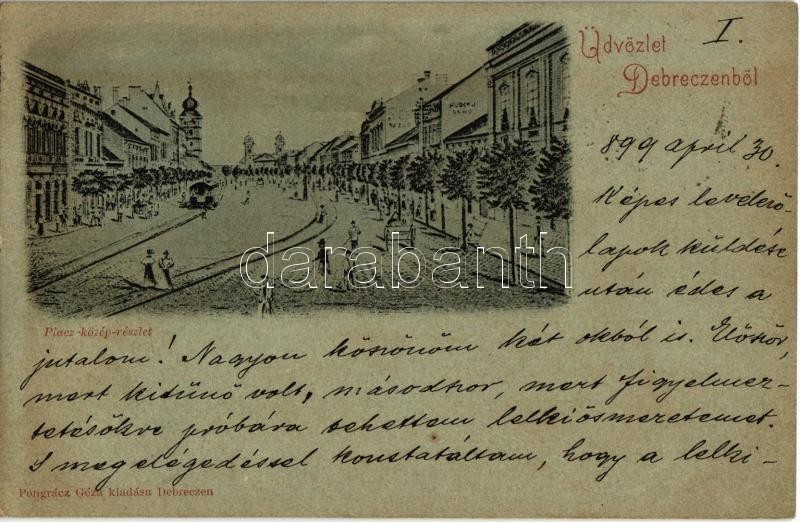 I.
Üdvözlet
Debreczenből
HUNGÁRIA
899 april 30.
Képes levelező
lapok küldése
után édes a
darabanth
Piacz-közép-részlet
jutalom! Nagyon köszönöm két okból is. Először,
mert kitünő volt, másodszor, mert figyelmez-
tetésökre próbára tehettem lelkiösmeretemet.
S megelégedéssel konstatáltam, hogy a lelki-
Pongrácz Géza kiadása Debreczen